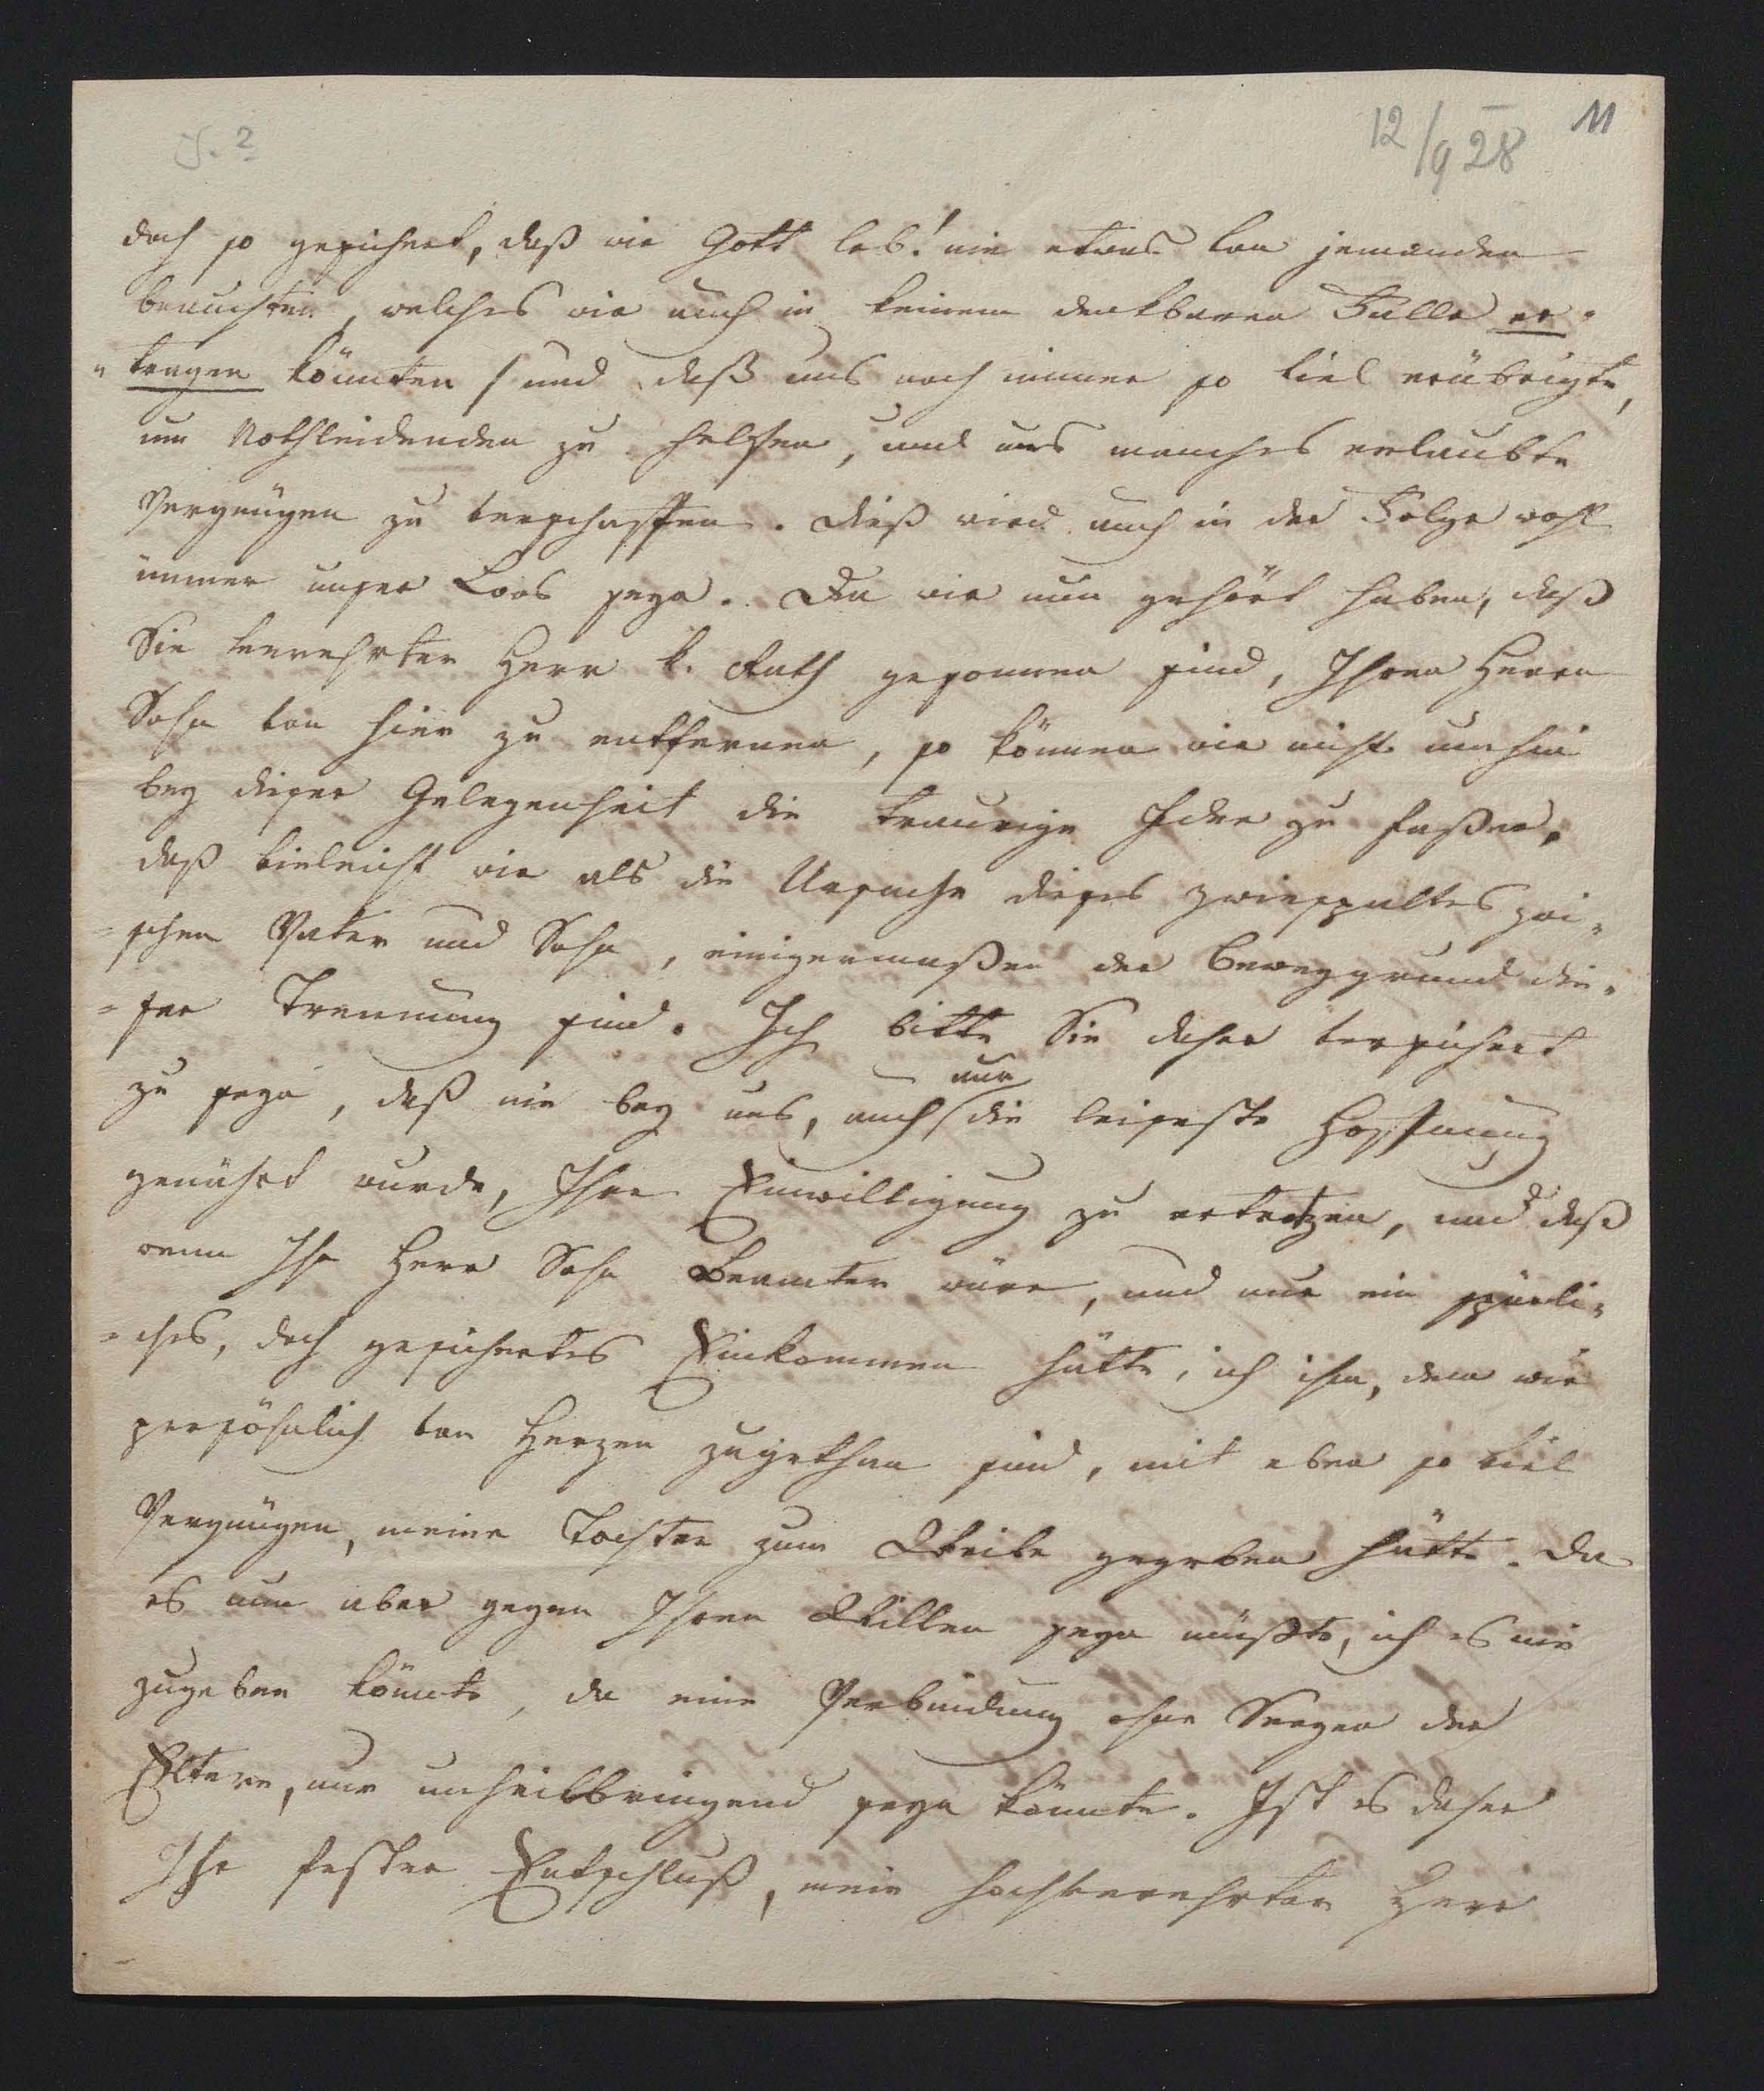 12/9 28
11
J. 2
doch so gesichert, daß wir Gott lob! nie etwas von jemanden
brauchten, welches wir auch in keinem denkbaren Falle er-
"tragen könnten / und daß uns noch immer so viel erübrigte,
um Nothleidenden zu helfen, und uns manches erlaubte
Vergnügen zu verschaffen. Dieß wird auch in der Folge wohl
immer unser Loos seyn. Da wir nun gehört haben, daß
Sie verehrter Herr k. Rath gesonnen sind, Ihren Herrn
Sohn von hier zu entfernen, so können wir nicht umhin
bey dieser Gelegenheit die traurige Idee zu faßen,
daß vieleicht wir als die Ursache dieses Zwiespaltes zwi-
=schen Vater und Sohn, einigermaßen der Beweggrund die-
=ser Trennung sind. Ich bitte Sie daher versichert
zu seyn, daß nie bey uns, auch nur die leiseste Hoffnung
genährt wurde, Ihre Einwilligung zu ertrotzen, und daß
wenn Ihr Herr Sohn Beamter wäre, und nur ein spärli-
=ches, doch gesichertes Einkommen hätte, ich ihm, dem wir
persöhnlich von Herzen zugethan sind, mit eben so viel
Vergnügen, meine Tochter zum Weibe gegeben hätte. Da
es nun aber gegen Ihren Willen seyn müßte, ich es nie
zugeben könnte, da eine Verbindung ohne Seegen der
Eltern, nur unheilbringend seyn könnte. Ist es daher
Ihr fester Entschluß, mein hochverehrter Herr